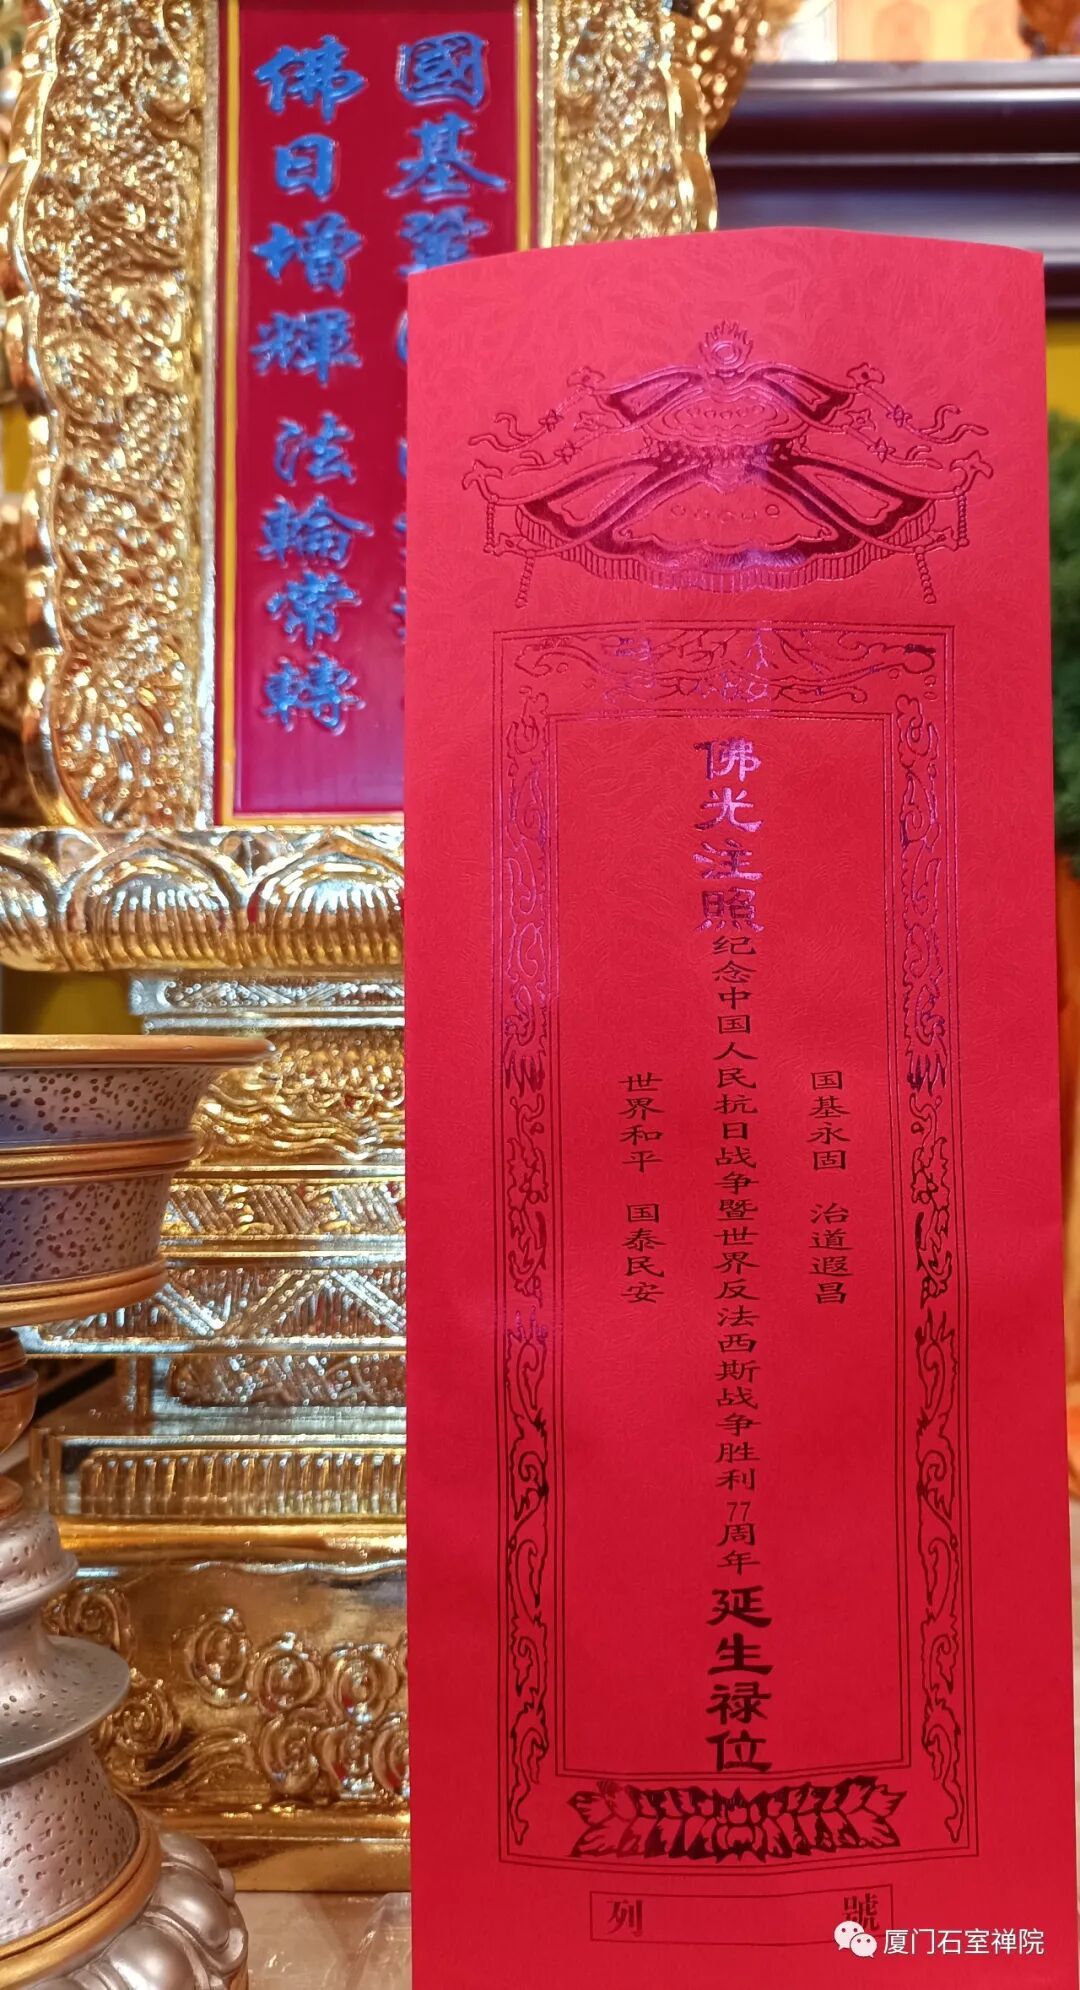 國基鞏
佛日增輝 法輪常轉
国基永固 治道遐昌
佛光注照纪念中国人民抗日战争暨世界反法西斯战争胜利77周年延生禄位
世界和平 国泰民安
列 號
厦门石室禅院